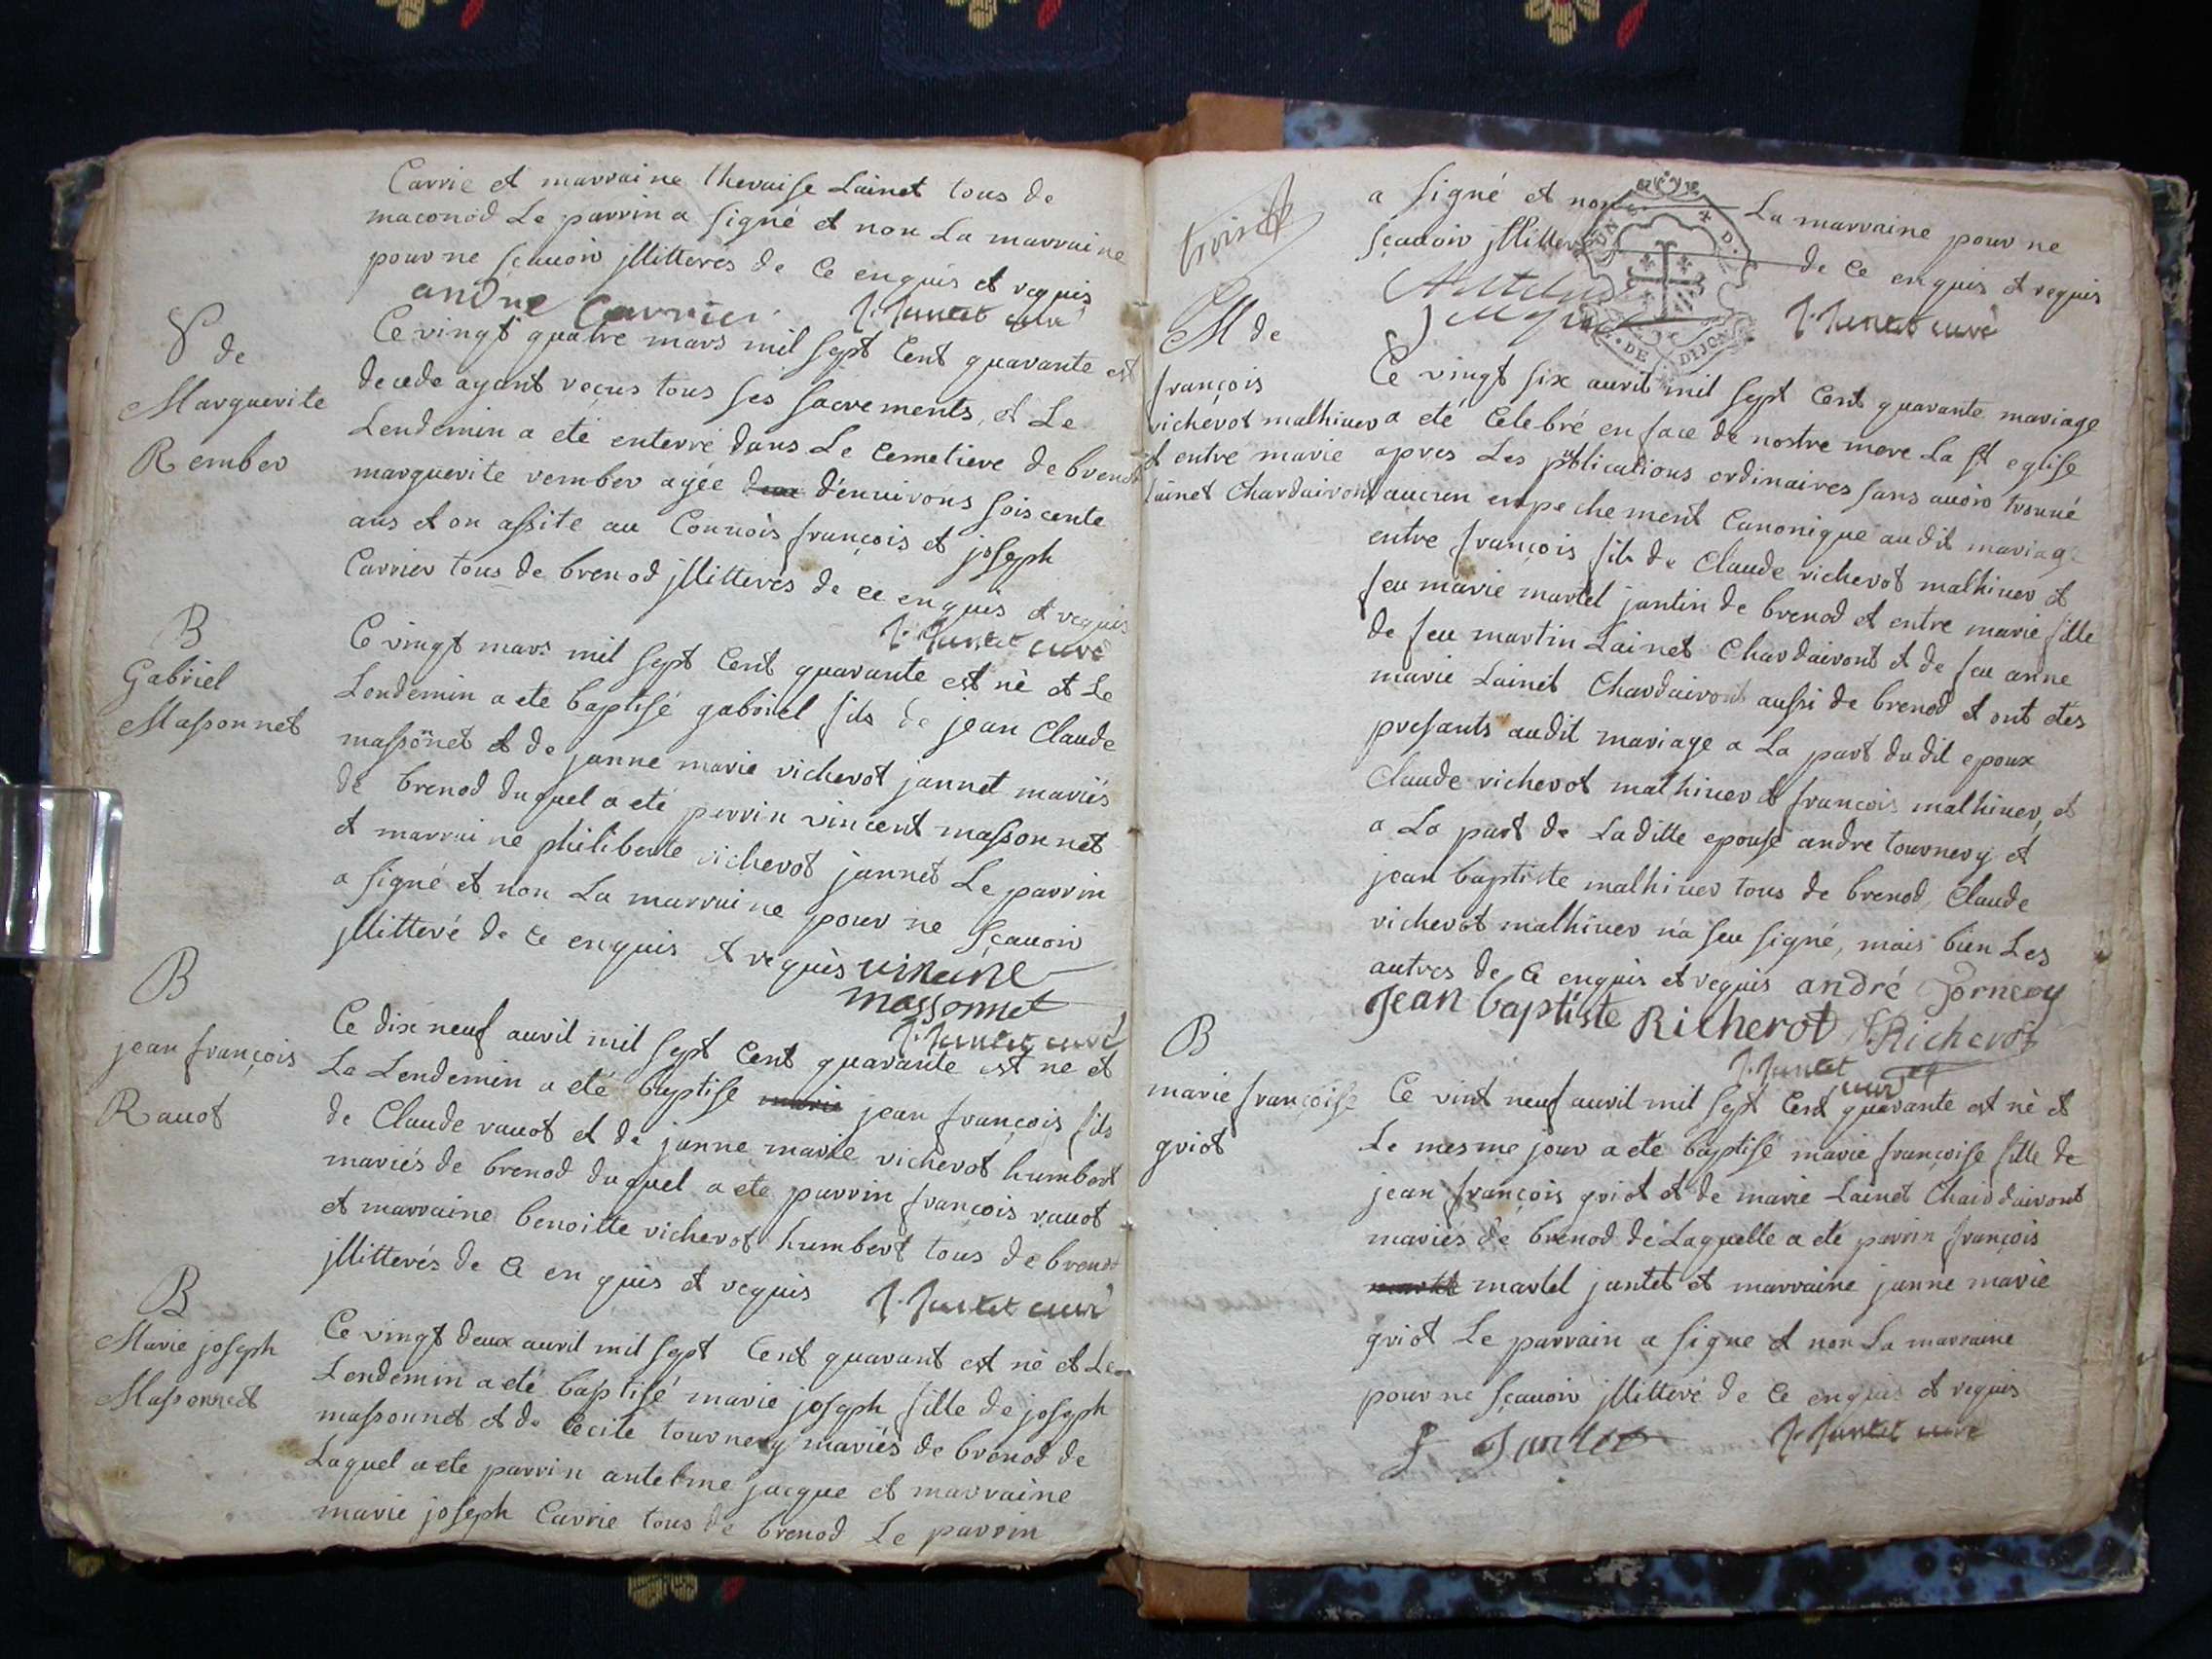 Carrie et marraine thevaise Lainet tous de
maconod Le parrin a signé et non La marraine
pour ne sçauoir jllitteres de Ce enquis et requis
andre Carrier J. Juntet curé
S de
Marguerite
Rember
Ce vingt quatre mars mil sept Cent quarante est
decede ayant reçus tous ses sacrements, et Le
Lendemin a eté enterré dans Le Cemetiere de brenod
marguerite rember agée d'enuirons soiscente
ans et on assite au Connois françois et joseph
Carrier tous de brenod jllitterés de ce enquis et requis
J. Juntet curé
B
Gabriel
Massonnet
Ce vingt mars mil sept Cent quarante est nè et Le
Lendemin a ete baptisé gabriel fils de jean Claude
massonet et de janne marie richerot jannet mariés
de brenod duquel a eté perrin vincent massonnet
et marraine philiberte richerot jannet Le parrin
a signé et non La marraine pour ne sçauoir
jllitteré de Ce enquis et requis vincine
massonnet
J. Juntet curé
B
jean françois
Rauot
Ce dix neuf auril mil sept Cent quarante est ne et
Le Lendemin a eté baptise marie jean françois fils
de Claude rauot et de janne marie richerot humbert
mariés de brenod duquel a ete parrin françois rauot
et marraine benoitte richerot humbert tous de brenod
jllitterés de Ce en quis et requis J. Juntet curé
B
Marie joseph
Massonnet
Ce vingt deux auril mil sept Cent quarant est nè et Le
Lendemin a eté baptisé marie joseph fille de joseph
massonnet et de Cecile tournery mariés de brenod de
Laquel a ete parrin antelme jacque et marraine
marie joseph Carrie tous de brenod Le parrin
a signé et non La marraine pour ne
sçauoir jllitter de Ce enquis et requis
J. Juntet curé
DE DIJON
M de
françois
richerot malhiuer
et entre marie
Lainet Chardairont
Ce vingt six auril mil sept Cent quarante mariage
a eté Celebré en face de nostre mere La st eglise
apres Les publications ordinaires sans auoir trouué
aucun empechement Canonique audit mariage
entre françois fils de Claude richerot malhiuer et
feu marie martel jantin de brenod et entre marie fille
de feu martin Lainet Chardairont et de feu anne
marie Lainet Chardairont aussi de brenod et ont etes
presants audit mariage a La part dudit epoux
Claude richerot malhiuer et françois malhiuer, et
a La part de Laditte epouse andre tournery et
jean baptiste malhiuer tous de brenod, Claude
richerot malhiuer n'a seu signé, mais bien Les
autres de Ce enquis et requis andré Tornery
Jean baptiste Richerot f. Richerot
J. Juntet curé
B
marie françoise
griot
Ce vint neuf auril mil sept Cent quarante est nè et
Le mesme jour a ete baptisé marie françoise fille de
jean françois griot et de marie Lainet Chairdairont
mariés de brenod de Laquelle a eté parrin françois
martel jantet et marraine janne marie
griot Le parrain a signe et non La marraine
pour ne sçauoir jllitteré de Ce enquis et requis
f Juntet J. Juntet curé